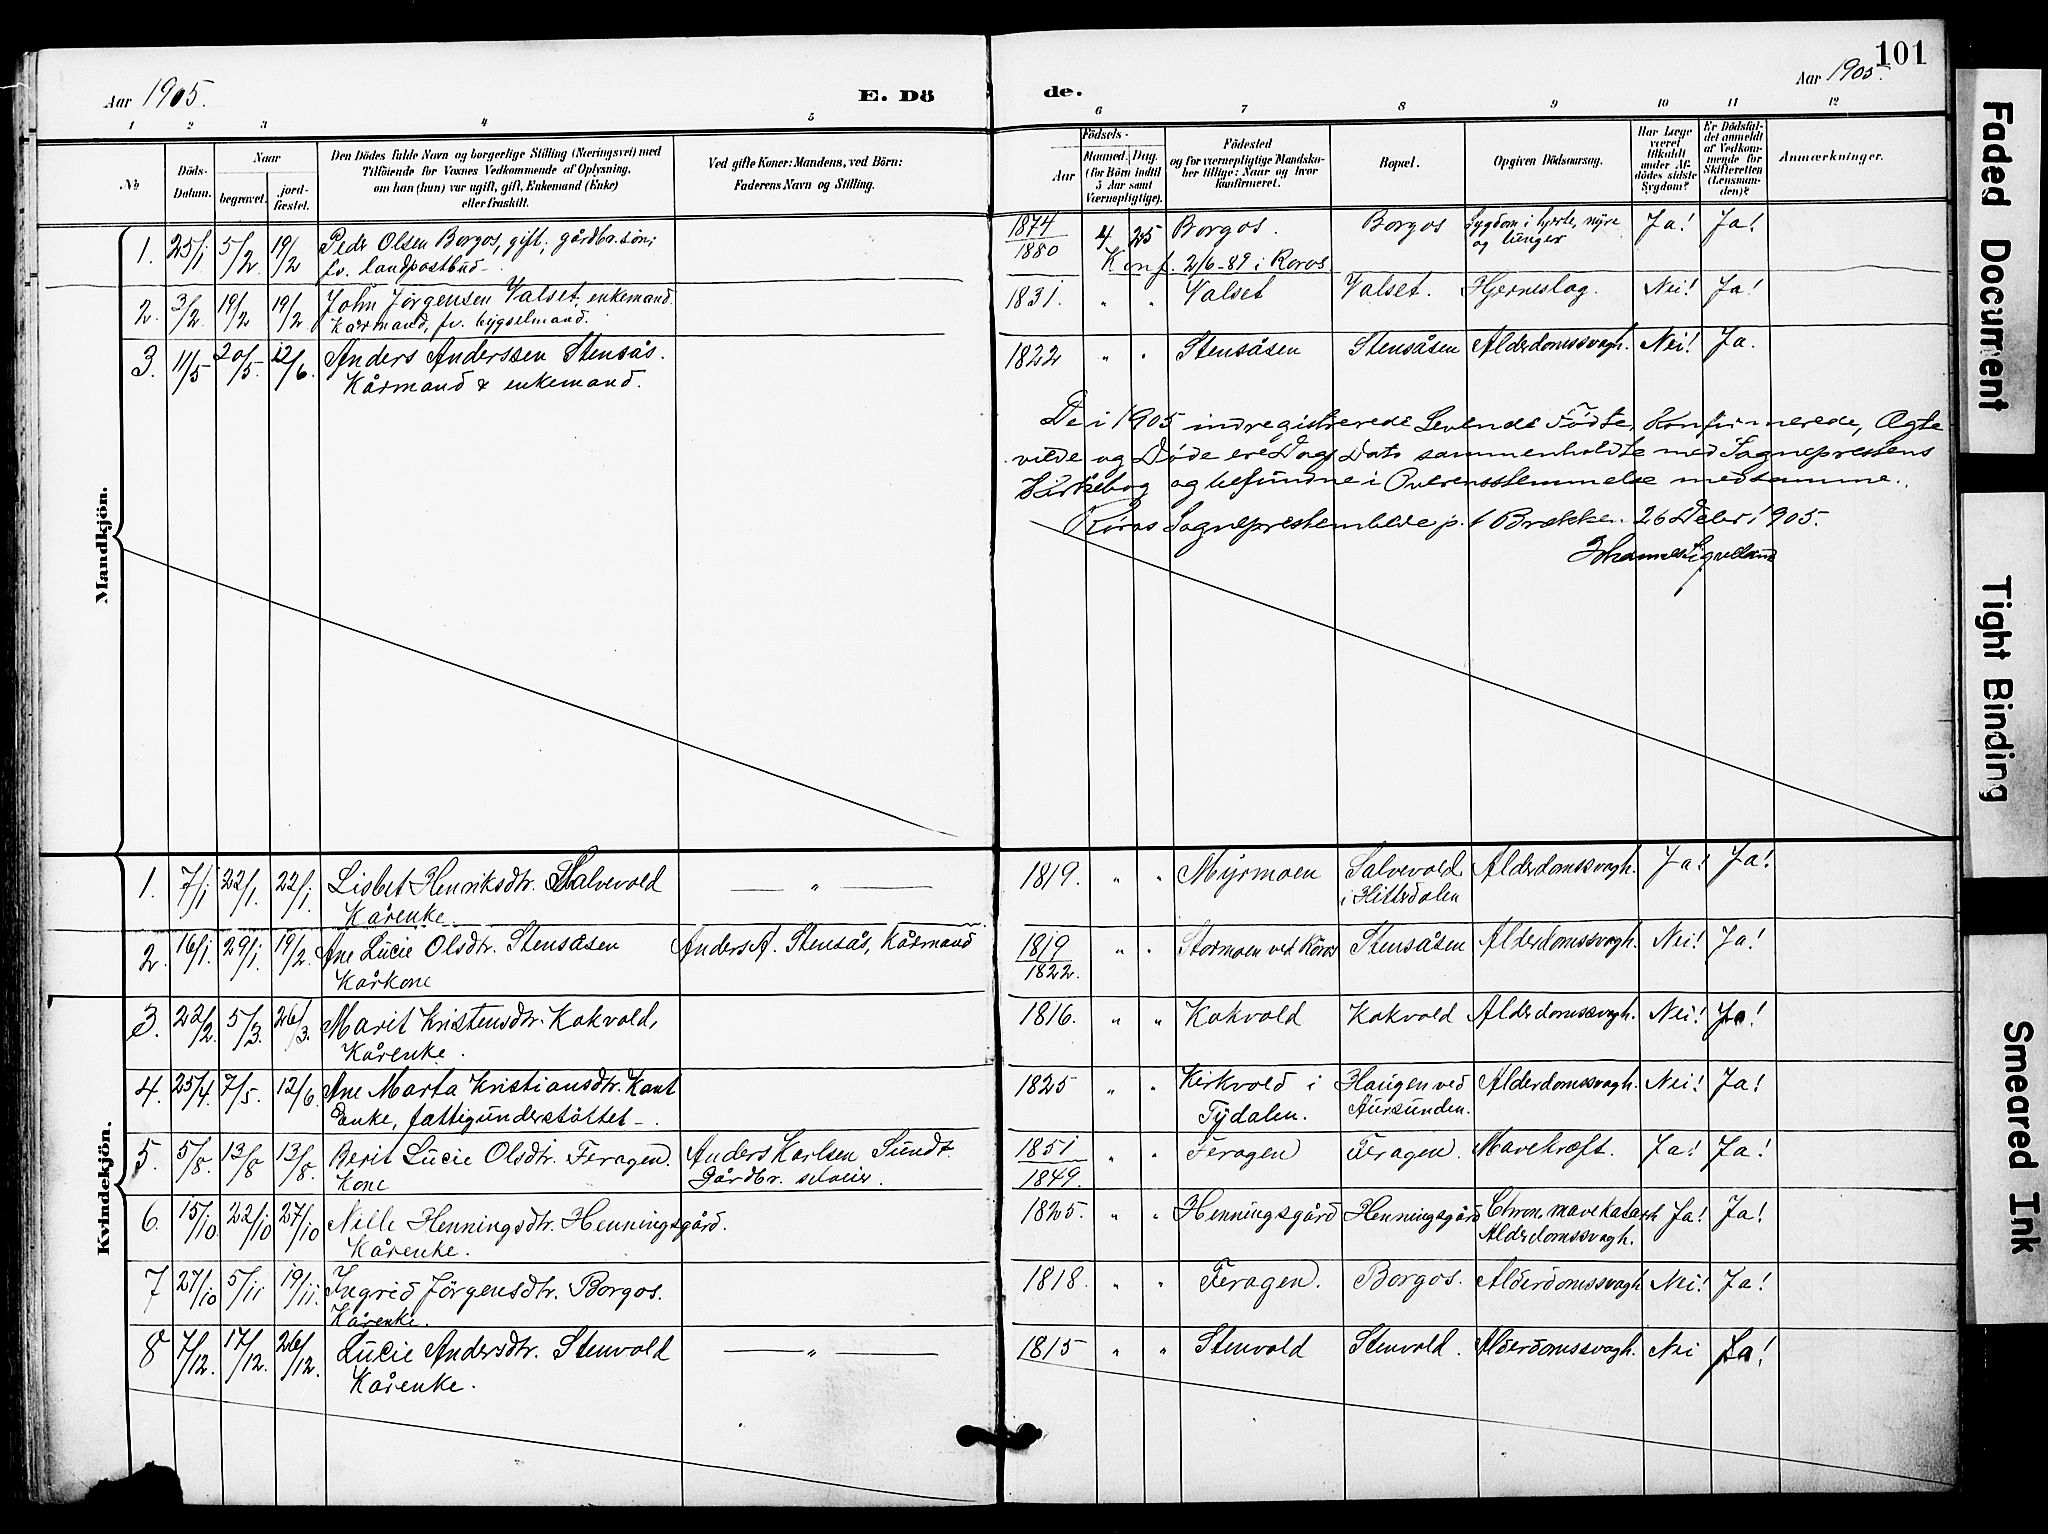 Aar 1905.
E. Dö
de.
Aar 1905.
101
1 2 3 4 5 6 7 8 9 10 11 12
No
Döds-
Datum.
Naar
begravet.
jord-
fæstet.
Den Dödes fulde Navn og borgerlige Stilling (Næringsvei) med
Tilföiende for Voxnes Vedkommende af Oplysning,
om han (hun) var ugift, gift, Enkemand (Enke)
eller fraskilt.
Ved gifte Koner: Mandens, ved Börn:
Faderens Navn og Stilling.
Födsels-
Aar
Maaned. Dag.
(for Börn indtil
5 Aar samt
Værnepligtige).
Födested
og for værnepligtige Mandska-
ber tillige: Naar og hvor
konfirmeret.
Bopæl.
Opgiven Dödsaarsag.
Har Læge
været
tilkaldt
under Af-
dödes sidste
Sygdom?
Er Dödsfal-
det anmeldt
af Vedkom-
mende for
Skifteretten
(Lensman-
den)?
Anmærkninger.
Mandkjön.
1. 25/1 5/2 19/2 Peder Olsen Borgos, gift, gårdbr.søn; 1874 4 25 Borgos. Borgos Sygdom i hjerte, nyre Ja! Ja!
fv. landpostbud 1880 Konf. 2/6-89 i Røros og lunger
2. 3/2. 19/2 19/2 John Jørgensen Valset, enkemand. 1831. " " Valset Valset. Hjerneslag. Nei! Ja!
Kårmand, fv. bygselmand.
3. 11/5 20/5. 12/6. Anders Anderssen Stensås. 1822 " " Stensåsen Stensåsen Alderdomssvagh. Nei! Ja.
Kårmand & enkemand.
De i 1905 indregistrerede Levende Fødte, Konfirmerede, Ægte
viede og Døde ere Dags Dato sammenholdte med Sognepræstens
Kirkebog og befundne i Overensstemmelse med samme.
Røros Sogneprestembede p. t Brækken 26 Debr 1905.
Kvindekjön.
1. 7/1 22/1. 22/1. Lisbet Henriksdtr. Salvevold — " — 1819. " " Myrmoen Salvevold Alderdomssvagh. Ja! Ja!
Kårenke. i Hitterdalen
2. 16/1. 29/1. 19/2. Ane Lucie Olsdtr. Stensåsen Anders A. Stensås, Kårmand 1819 " " Stormoen ved Røros Stensåsen Alderdomssvagh. Nei! Ja!
Kårkone 1822.
3. 22/2. 5/3. 26/3. Marit Kristensdtr. Kokvold, 1816. " " Kokvold Kokvold Alderdomssvagh. Nei! Ja!
Kårenke.
4. 25/4. 7/5. 12/6. Ane Marta Kristiansdtr. Kant 1825 " " Kirkvold i Haugen ved Alderdomssvagh. Nei! Ja!
Enke, fattigunderstöttet. Tydalen. Aursunden.
5. 5/8. 13/8 13/8. Berit Lucie Olsdtr. Feragen. Anders Karlsen Sundt. 1851 " " Feragen Feragen. Mavekræft. Ja! Ja!
Kone Gårdbr. selveier. 1849.
6. 15/10 22/10 27/10 Nille Henningsdtr. Henningsgård. 1825. " " Henningsgård Henningsgård Chron. mavekatarrh Ja! Ja!
Kårenke. Alderdomssvagh.
7 27/10 5/11 19/11. Ingrid Jörgensdtr. Borgos. 1818. " " Feragen. Borgos. Alderdomssvagh Nei! Ja!
Kårenke.
8 7/12. 17/12. 26/12. Lucie Andersdtr. Stenvold — " — 1815 " " Stenvold Stenvold. Alderdomssvagh. Nei Ja!
Kårenke.
Faded Document
Tight Binding
Smeared Ink